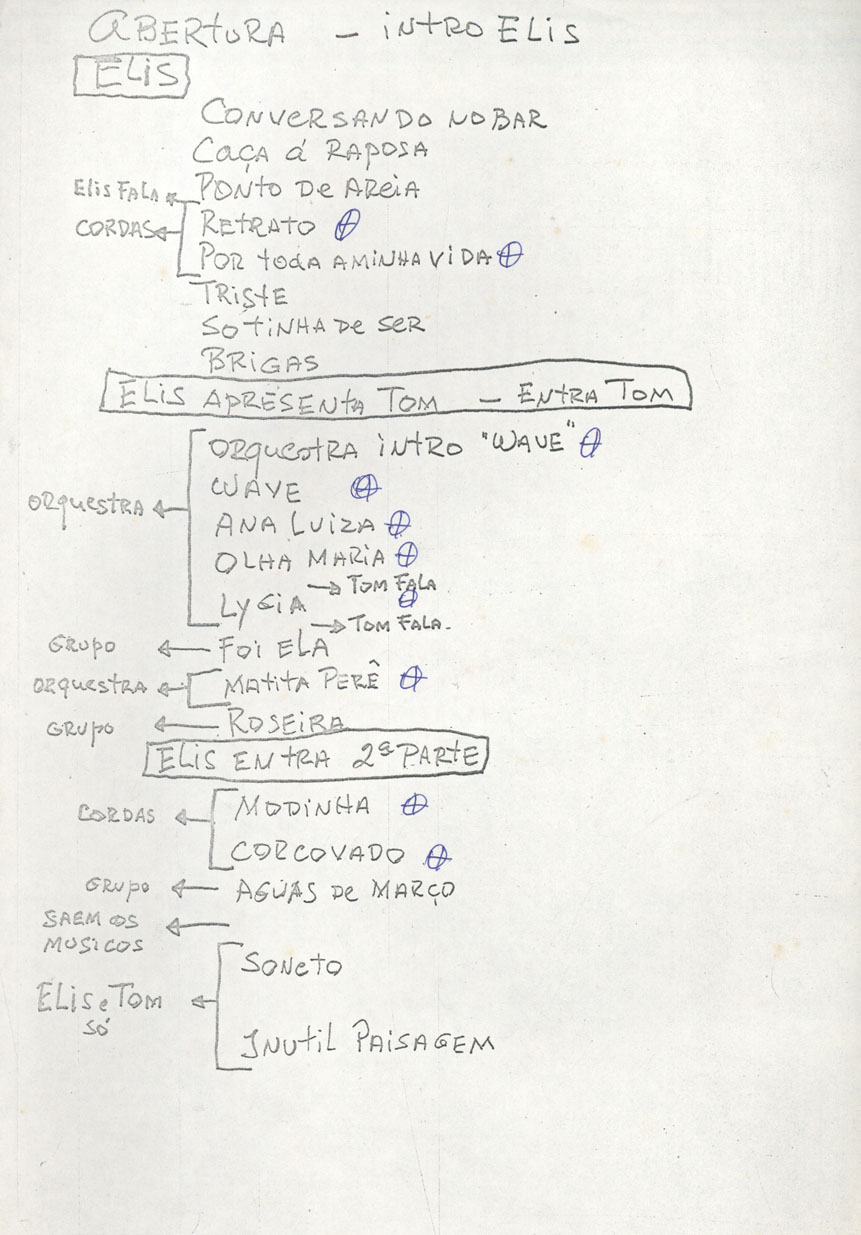 ABERTURA - INTRO ELIS
ELIS
CONVERSANDO NO BAR
CAÇA Á RAPOSA
ELIS FALA PONTO DE AREIA
CORDAS RETRATO
POR TODA A MINHA VIDA
TRISTE
SÓ TINHA DE SER
BRIGAS
ELIS APRESENTA TOM - ENTRA TOM
ORQUESTRA INTRO "WAVE"
WAVE
ORQUESTRA
ANA LUIZA
OLHA MARIA
TOM FALA
LYGIA
TOM FALA.
GRUPO FOI ELA
ORQUESTRA MATITA PERÊ
GRUPO ROSEIRA
ELIS ENTRA 2ª PARTE
CORDAS MODINHA
CORCOVADO
GRUPO AGUAS DE MARÇO
SAEM OS
MUSICOS
SONETO
ELIS e TOM
SÓ
INUTIL PAISAGEM